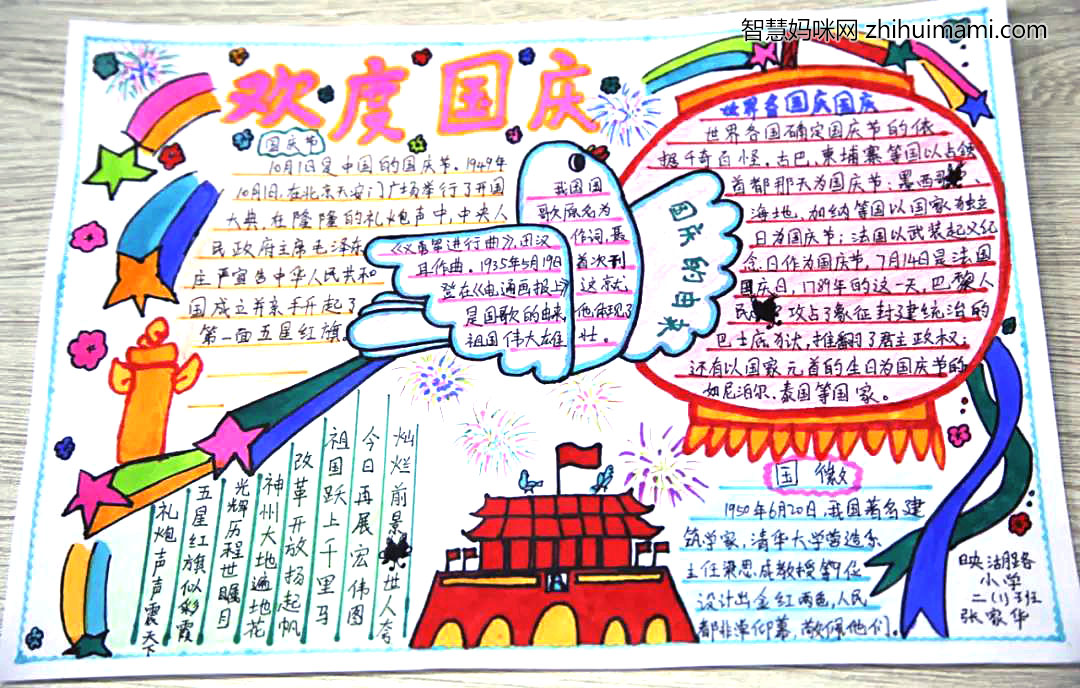 智慧妈咪网 zhihuimami.com
欢度国庆
国庆节
10月1日是中国的国庆节。1949年
10月1日,在北京天安门广场举行了开国
大典,在隆隆的礼炮声中,中央人
民政府主席毛泽东
庄严宣告中华人民共和
国成立并亲手升起了
第一面五星红旗。
我国国
歌原名为
《义勇军进行曲》,田汉作词,聂
耳作曲。1935年5月19日首次刊
登在《电通画报上》这就
是国歌的由来,他体现了
祖国伟大雄壮。
国庆的由来
世界各国庆国庆
世界各国确定国庆节的依
据千奇百怪。古巴、柬埔寨等国以占领
首都那天为国庆节;墨西哥、
海地、加纳等国以国家为独立
日为国庆节;法国以武装起义纪
念日作为国庆节,7月14日是法国
国庆日,1789年的这一天,巴黎人
民攻占了象征封建统治的
巴士底狱,推翻了君主政权,
还有以国家元首的生日为国庆节的
如尼泊尔、泰国等国家。
国徽
1950年6月20日,我国著名建
筑学家,清华大学营造系
主任梁思成教授等9位
设计出金红两色,人民
都非常仰慕,敬佩他们。
灿烂前景世人夸
今日再展宏伟图
祖国跃上千里马
改革开放扬起帆
神州大地遍地花
光辉历程世瞩目
五星红旗似彩霞
礼炮声声震天下
映湖路
小学
二(1)班
张家华